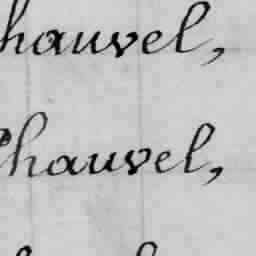 hauvel,
Chauvel,